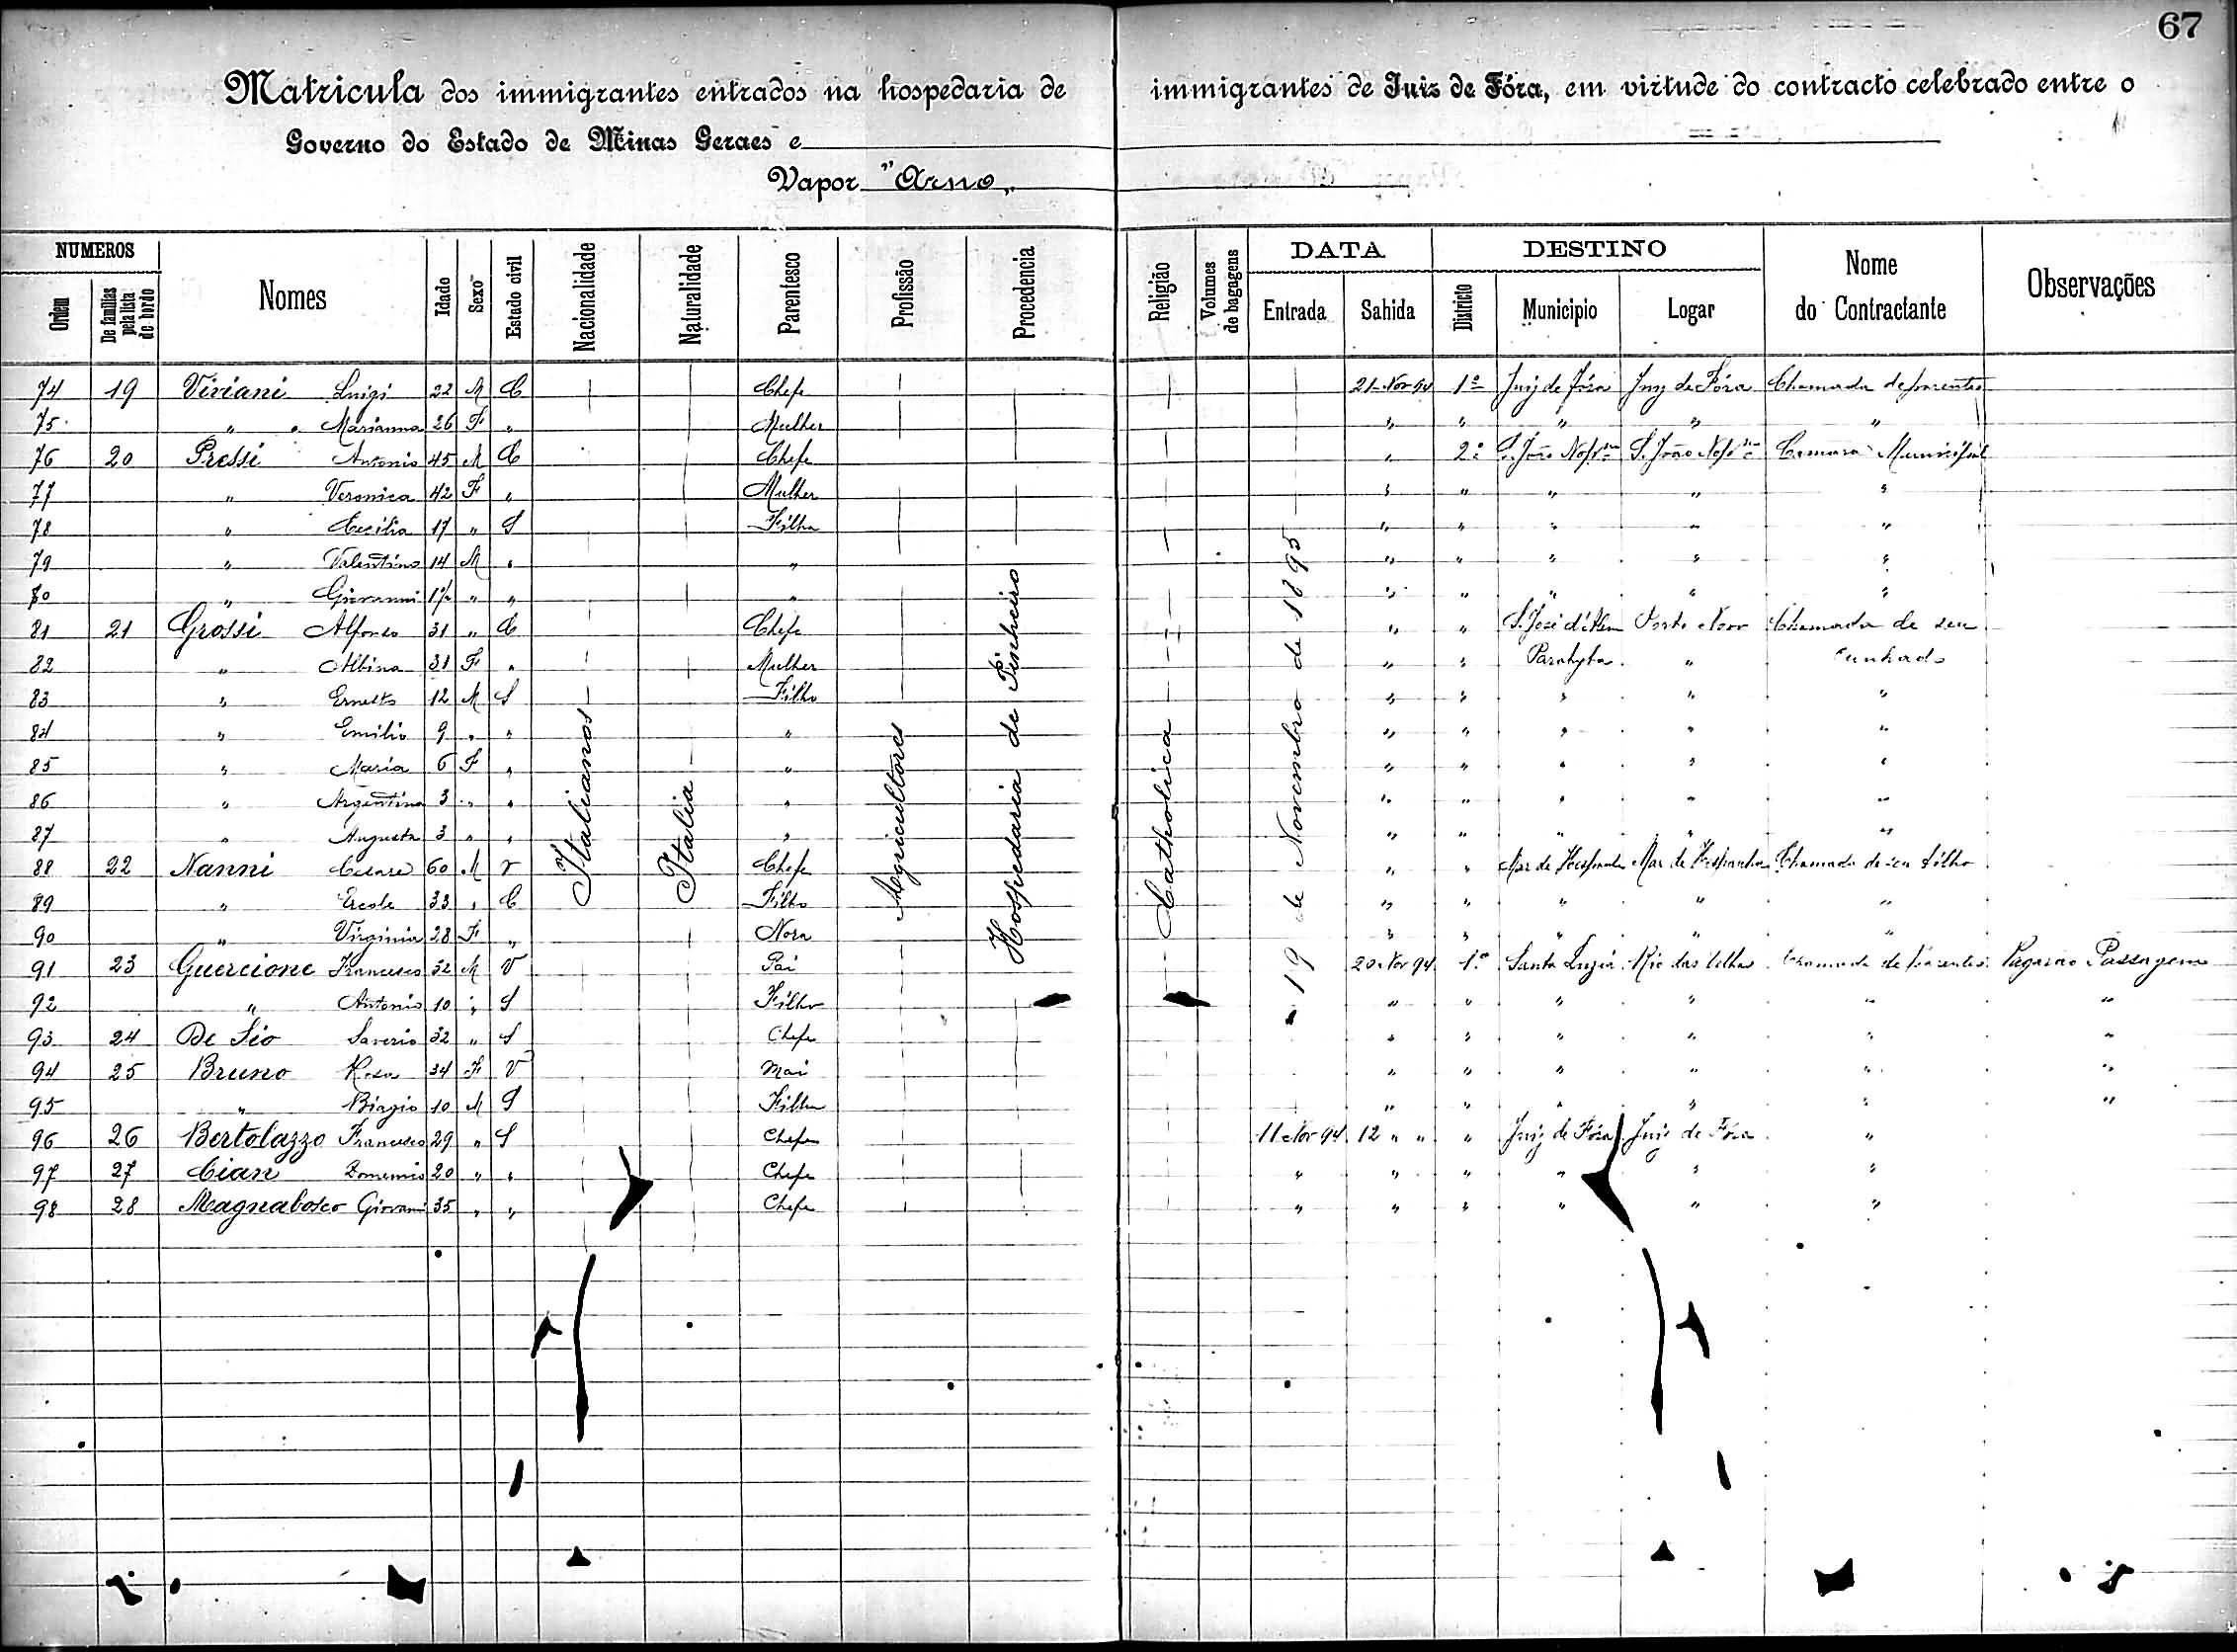 67
Matricula dos immigrantes entrados na hospedaria de immigrantes de Juiz de Fóra, em virtude do contracto celebrado entre o
Governo do Estado de Minas Geraes e
Vapor "Arno"
NUMEROS DATA DESTINO
Ordem De familias pela lista de bordo Nomes Idade Sexo Estado civil Nacionalidade Naturalidade Parentesco Profissão Procedencia Religião Volumes de bagagens Entrada Sahida Districto Municipio Logar Nome do Contractante Observações
74 19 Viviani Luigi 22 M C Chefe 21-Nov-94 1º Juiz de Fóra Juiz de Fóra Chamada de parentes
75 " Marianna 26 F " Mulher " " " " "
76 20 Pressi Antonio 45 M C Chefe " 2º S. João Nepº S. João Nepº Camara Municipal
77 " Veronica 42 F " Mulher " " " " "
78 " Cecilia 17 " S Filha " " " " "
79 " Valentino 14 M " " " " " " "
80 " Giovanni 1½ " " " " " " " "
81 21 Grossi Alfonso 31 " C Chefe " " S. José d'Alem Porto Novo Chamada de seu
82 " Albina 31 F " Mulher " " Parahyba " cunhado
83 " Ernesto 12 M S Filho " " " " "
84 " Emilio 9 " " " " " " " "
85 " Maria 6 F " " " " " " "
86 " Argentina 3 " " " " " " " "
87 " Augusta 3 " " " " " " " "
88 22 Nanni Cesare 60 M V Chefe " " Mar de Hespanha Mar de Hespanha Chamada de seu filho
89 " Ercole 33 " C Filho " " " " "
90 " Virginia 28 F " Nora " " " " "
91 23 Guercione Francesco 32 M V Pai 20-Nov-94 1º Santa Luzia Rio das Velhas Chamada de parentes Pagarao Passagens
92 " Antonio 10 " S Filho " " " " " "
93 24 De Sio Saverio 32 " S Chefe " " " " " "
94 25 Bruno Rosa 34 F V Mai " " " " " "
95 " Biagio 10 M S Filho " " " " " "
96 26 Bertolazzo Francesco 29 " S Chefe 11 Nov 94 12 " " " Juiz de Fóra Juiz de Fóra "
97 27 Cian Domenico 20 " " Chefe " " " " " "
98 28 Magnabosco Giovani 35 " " Chefe " " " " " "
Italianos
Italia
Agricultores
Hospedaria de Pinheiro
Catholica
19 de Novembro de 1895